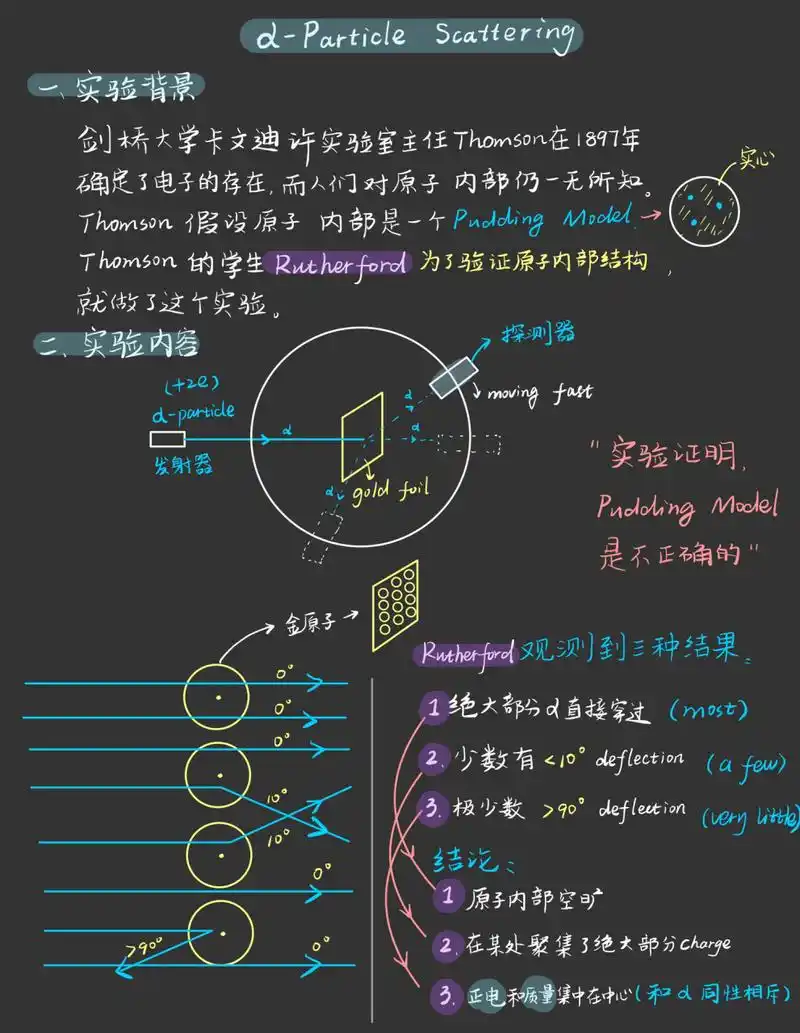 α-Particle Scattering
一、实验背景
剑桥大学卡文迪许实验室主任Thomson在1897年
确定了电子的存在,而人们对原子内部仍一无所知。
实心
Thomson 假设原子内部是一个Pudding Model.
Thomson 的学生 Rutherford 为了验证原子内部结构,
就做了这个实验。
二、实验内容
探测器
moving fast
(+2e)
α-particle
发射器
α
α
α
α
gold foil
"实验证明,
Pudding Model
是不正确的"
金原子
Rutherford 观测到三种结果:
1 绝大部分α直接穿过 (most)
2. 少数有 <10° deflection (a few)
3. 极少数 >90° deflection (very little)
结论:
1 原子内部空旷
2. 在某处聚集了绝大部分charge
3. 正电和质量集中在中心(和α同性相斥)
0°
0°
0°
10°
10°
0°
>90°
0°